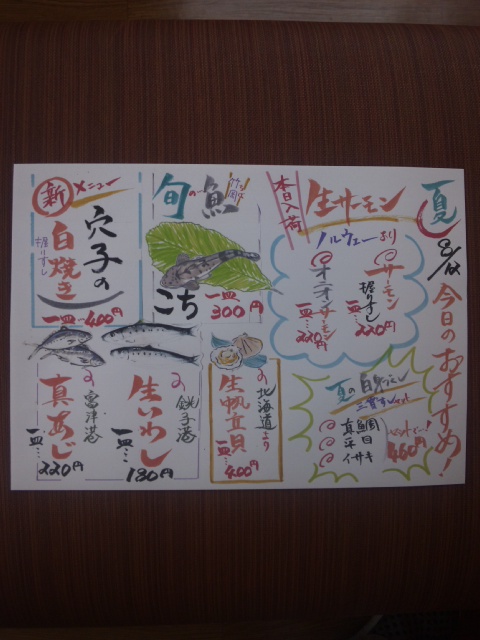 夏
今日のおすすめ!
本日入荷
生サーモン
ノルウェーより
サーモン
握りずし
一皿…220円
オニオンサーモン
一皿…220円
旬の魚
こち
一皿…300円
新メニュー
穴子の
白焼き
握りずし
一皿…400円
夏の白身づくし
三貫セット
真鯛
平目
イサキ
460円
北海道より
生帆立貝
一皿…400円
銚子港
生いわし
一皿…180円
富津港
真あじ
一皿…220円